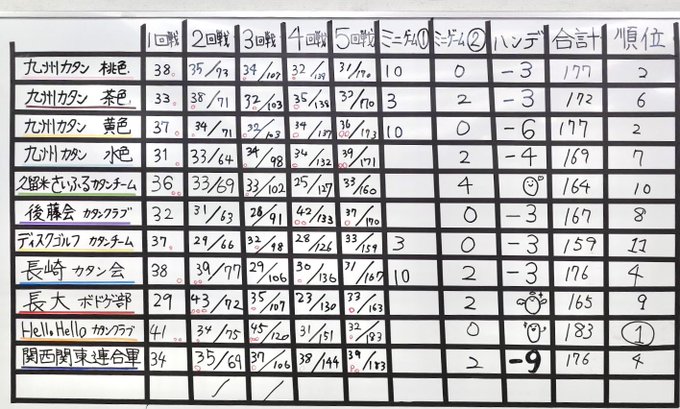 1回戦 2回戦 3回戦 4回戦 5回戦 ミニゲーム① ミニゲーム② ハンデ 合計 順位
九州カタン 桃色 38 35/73 34/107 32/139 31/170 10 0 -3 177 2
九州カタン 茶色 33 38/71 32/103 35/138 32/170 3 2 -3 172 6
九州カタン 黄色 37 34/71 32/103 34/137 36/173 10 0 -6 177 2
九州カタン 水色 31 33/64 34/98 34/132 39/171 2 -4 169 7
久留米さいふるカタンチーム 36 33/69 33/102 25/127 33/160 4 164 10
後藤会 カタンクラブ 32 31/63 28/91 42/133 37/170 0 -3 167 8
ディスクゴルフ カタンチーム 37 29/66 32/98 28/126 33/159 3 0 -3 159 11
長崎 カタン会 38 39/77 29/106 30/136 31/167 10 2 -3 176 4
長大 ボドゲ部 29 43/72 35/107 23/130 33/163 2 165 9
Hello Hello カタンクラブ 41 34/75 45/120 31/151 32/183 0 183 1
関西関東連合軍 34 35/69 37/106 38/144 39/183 2 -9 176 4
/ /